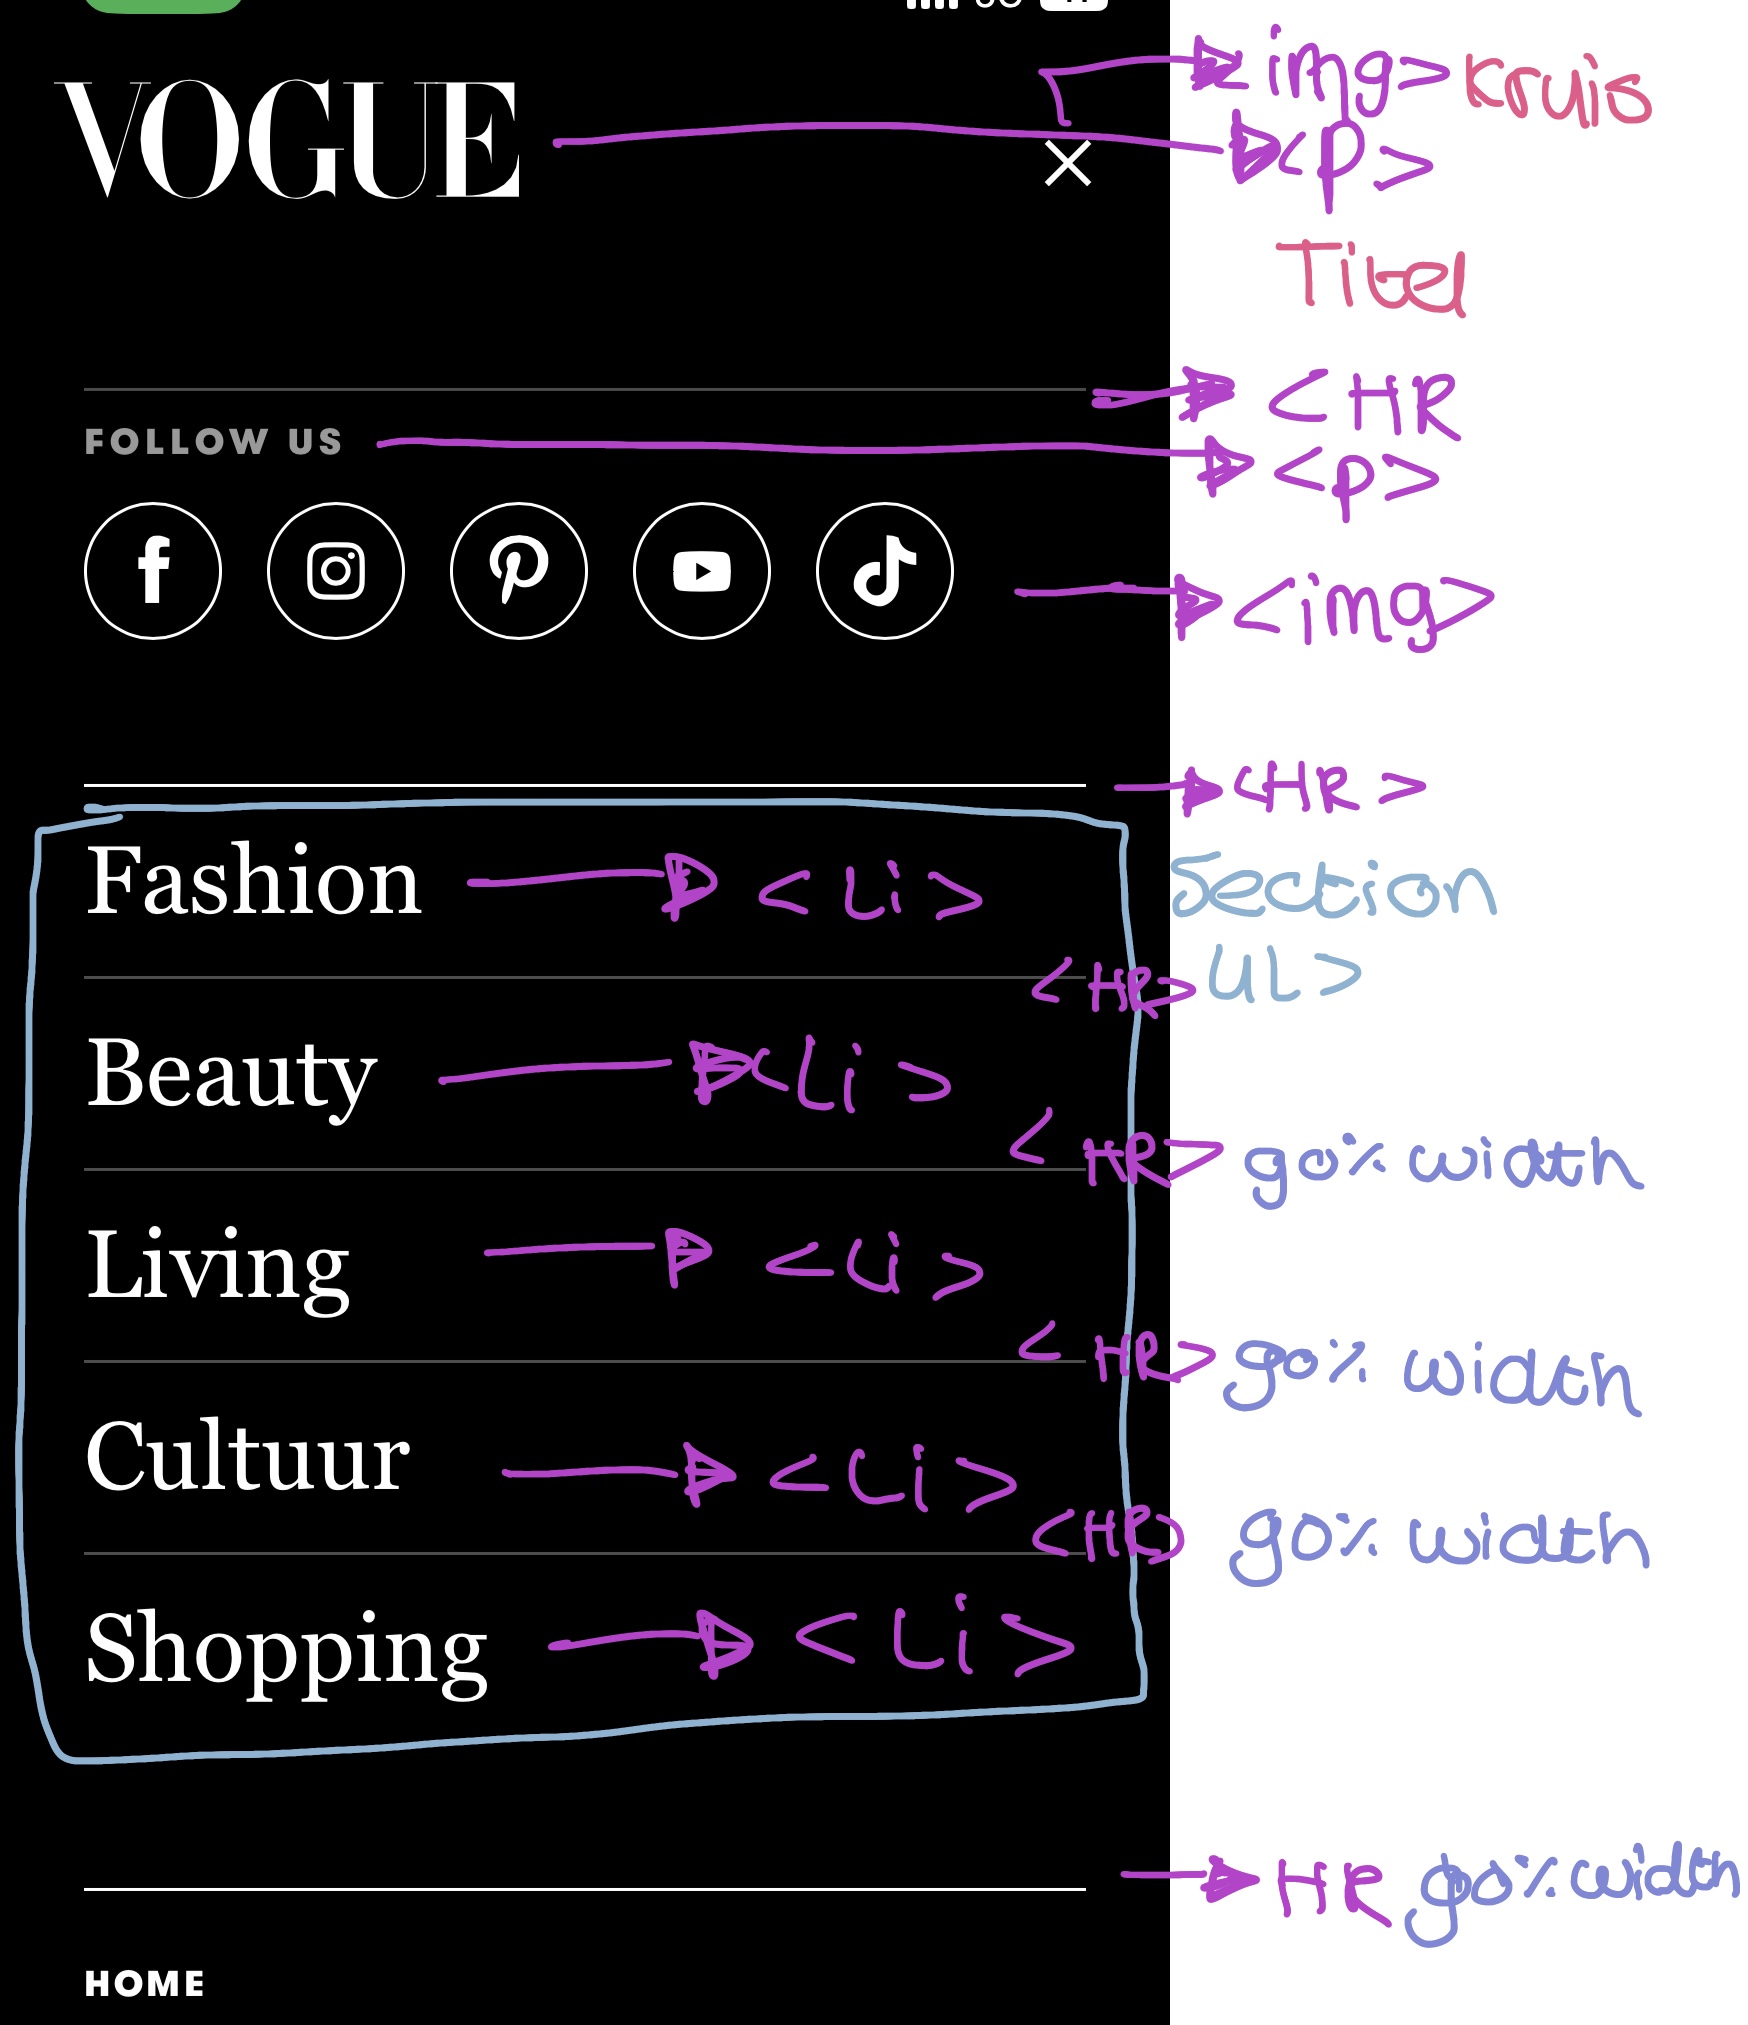 img> kruis
VOGUE
<p>
Titel
<HR
FOLLOW US
<p>
<img>
<HR>
Fashion <Li>
Section
<HR> UL>
Beauty <Li>
<HR> 90% width
Living <Li>
<HR> 90% width
Cultuur <Li>
<HR> 90% width
Shopping <Li>
HR 90% width
HOME